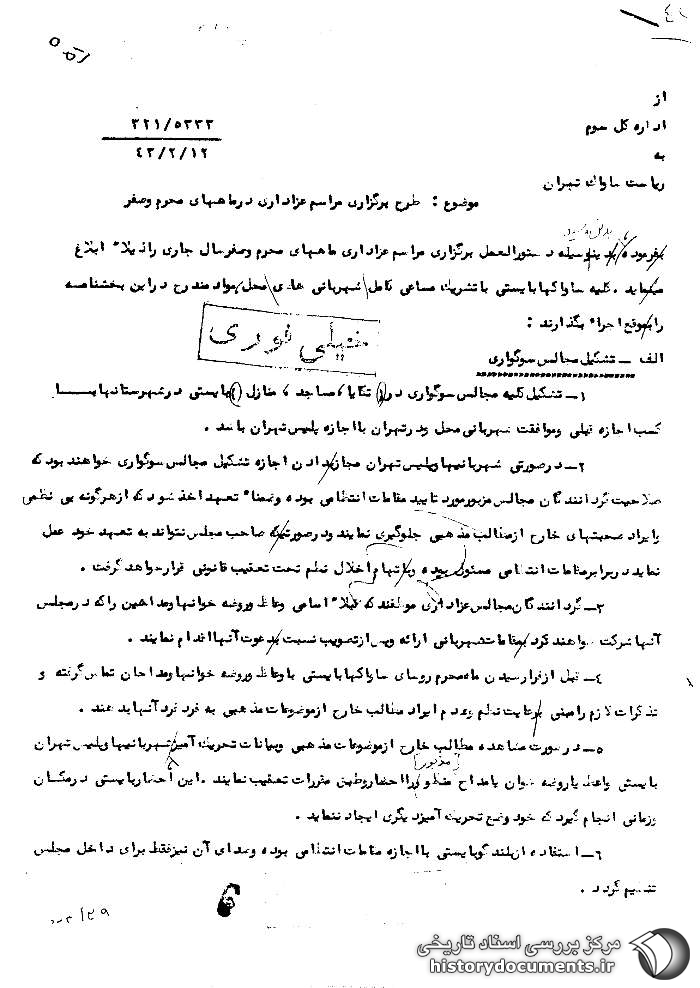 از
اداره کل سوم
۳۲۱/۵۳۳۳
به
۴۳/۲/۱۲
ریاست ساواک تهران
موضوع : طرح برگزاری مراسم عزاداری درماههای محرم وصفر
بفرموده بدینوسیله دستورالعمل برگزاری مراسم عزاداری ماههای محرم وصفرسال جاری راذیلا" ابلاغ
مینماید . کلیه ساواکهابایستی باتشریک مساعی کامل شهربانی های محل موادمندرج دراین بخشنامه
رابموقع اجرا" بگذارند :
خیلی فوری
الف ــ تشکیل مجالس سوگواری
۱ــ تشکیل کلیه مجالس سوگواری در( تکایا، مساجد ، منازل ) بایستی درشهرستانهابـــا
کسب اجازه قبلی وموافقت شهربانی محل ودرتهران بااجازه پلیس تهران باشد .
۲ــ درصورتی شهربانیهاوپلیس تهران مجازبدادن اجازه تشکیل مجالس سوگواری خواهند بود که
صلاحیت گردانندگان مجالس مزبورمورد تایید مقامات انتظامی بوده وضمنا" تعهد اخذ شود که ازهرگونه بی نظمی
وایراد صحبتهای خارج ازمطالب مذهبی جلوگیری نمایند ودرصورتیکه صاحب مجلس نتواند به تعهد خود عمل
نماید دربرابرمقامات انتظامی مسئول بوده وباتهام اخلال نظم تحت تعقیب قانونی قرارخواهد گرفت .
۳ــ گردانندگان مجالس عزاداری موظفند که قبلا" اسامی وعاظ وروضه خوانهاومداحین راکه درمجلس
آنهاشرکت خواهند کرد بمقامات شهربانی ارائه وپس ازتصویب نسبت بدعوت آنهااقدام نمایند .
۴ــ قبل ازفرارسیدن ماه محرم روسای ساواکهابایستی باوعاظ وروضه خوانهاومداحان تماس گرفته و
تذکرات لازم رامبنی برعایت نظم وعدم ایراد مطالب خارج ازموضوعات مذهبی به فرد فرد آنهابدهند .
۵ــ درصورت مشاهده مطالب خارج ازموضوعات مذهبی وبیانات تحریک آمیزشهربانیهاوپلیس تهران
بایستی واعظ یاروضه خوان یامداح مذبور رااحضاروطبق مقررات تعقیب نمایند . این احضاربایستی درمکان
وزمانی انجام گیرد که خود وضع تحریک آمیزدیگری ایجاد ننماید .
۶ــ استفاده ازبلندگوبایستی بااجازه مقامات انتظامی بوده وصدای آن نیزفقط برای داخل مجلس
تنظیم گردد .
مرکز بررسی اسناد تاریخی
historydocuments.ir